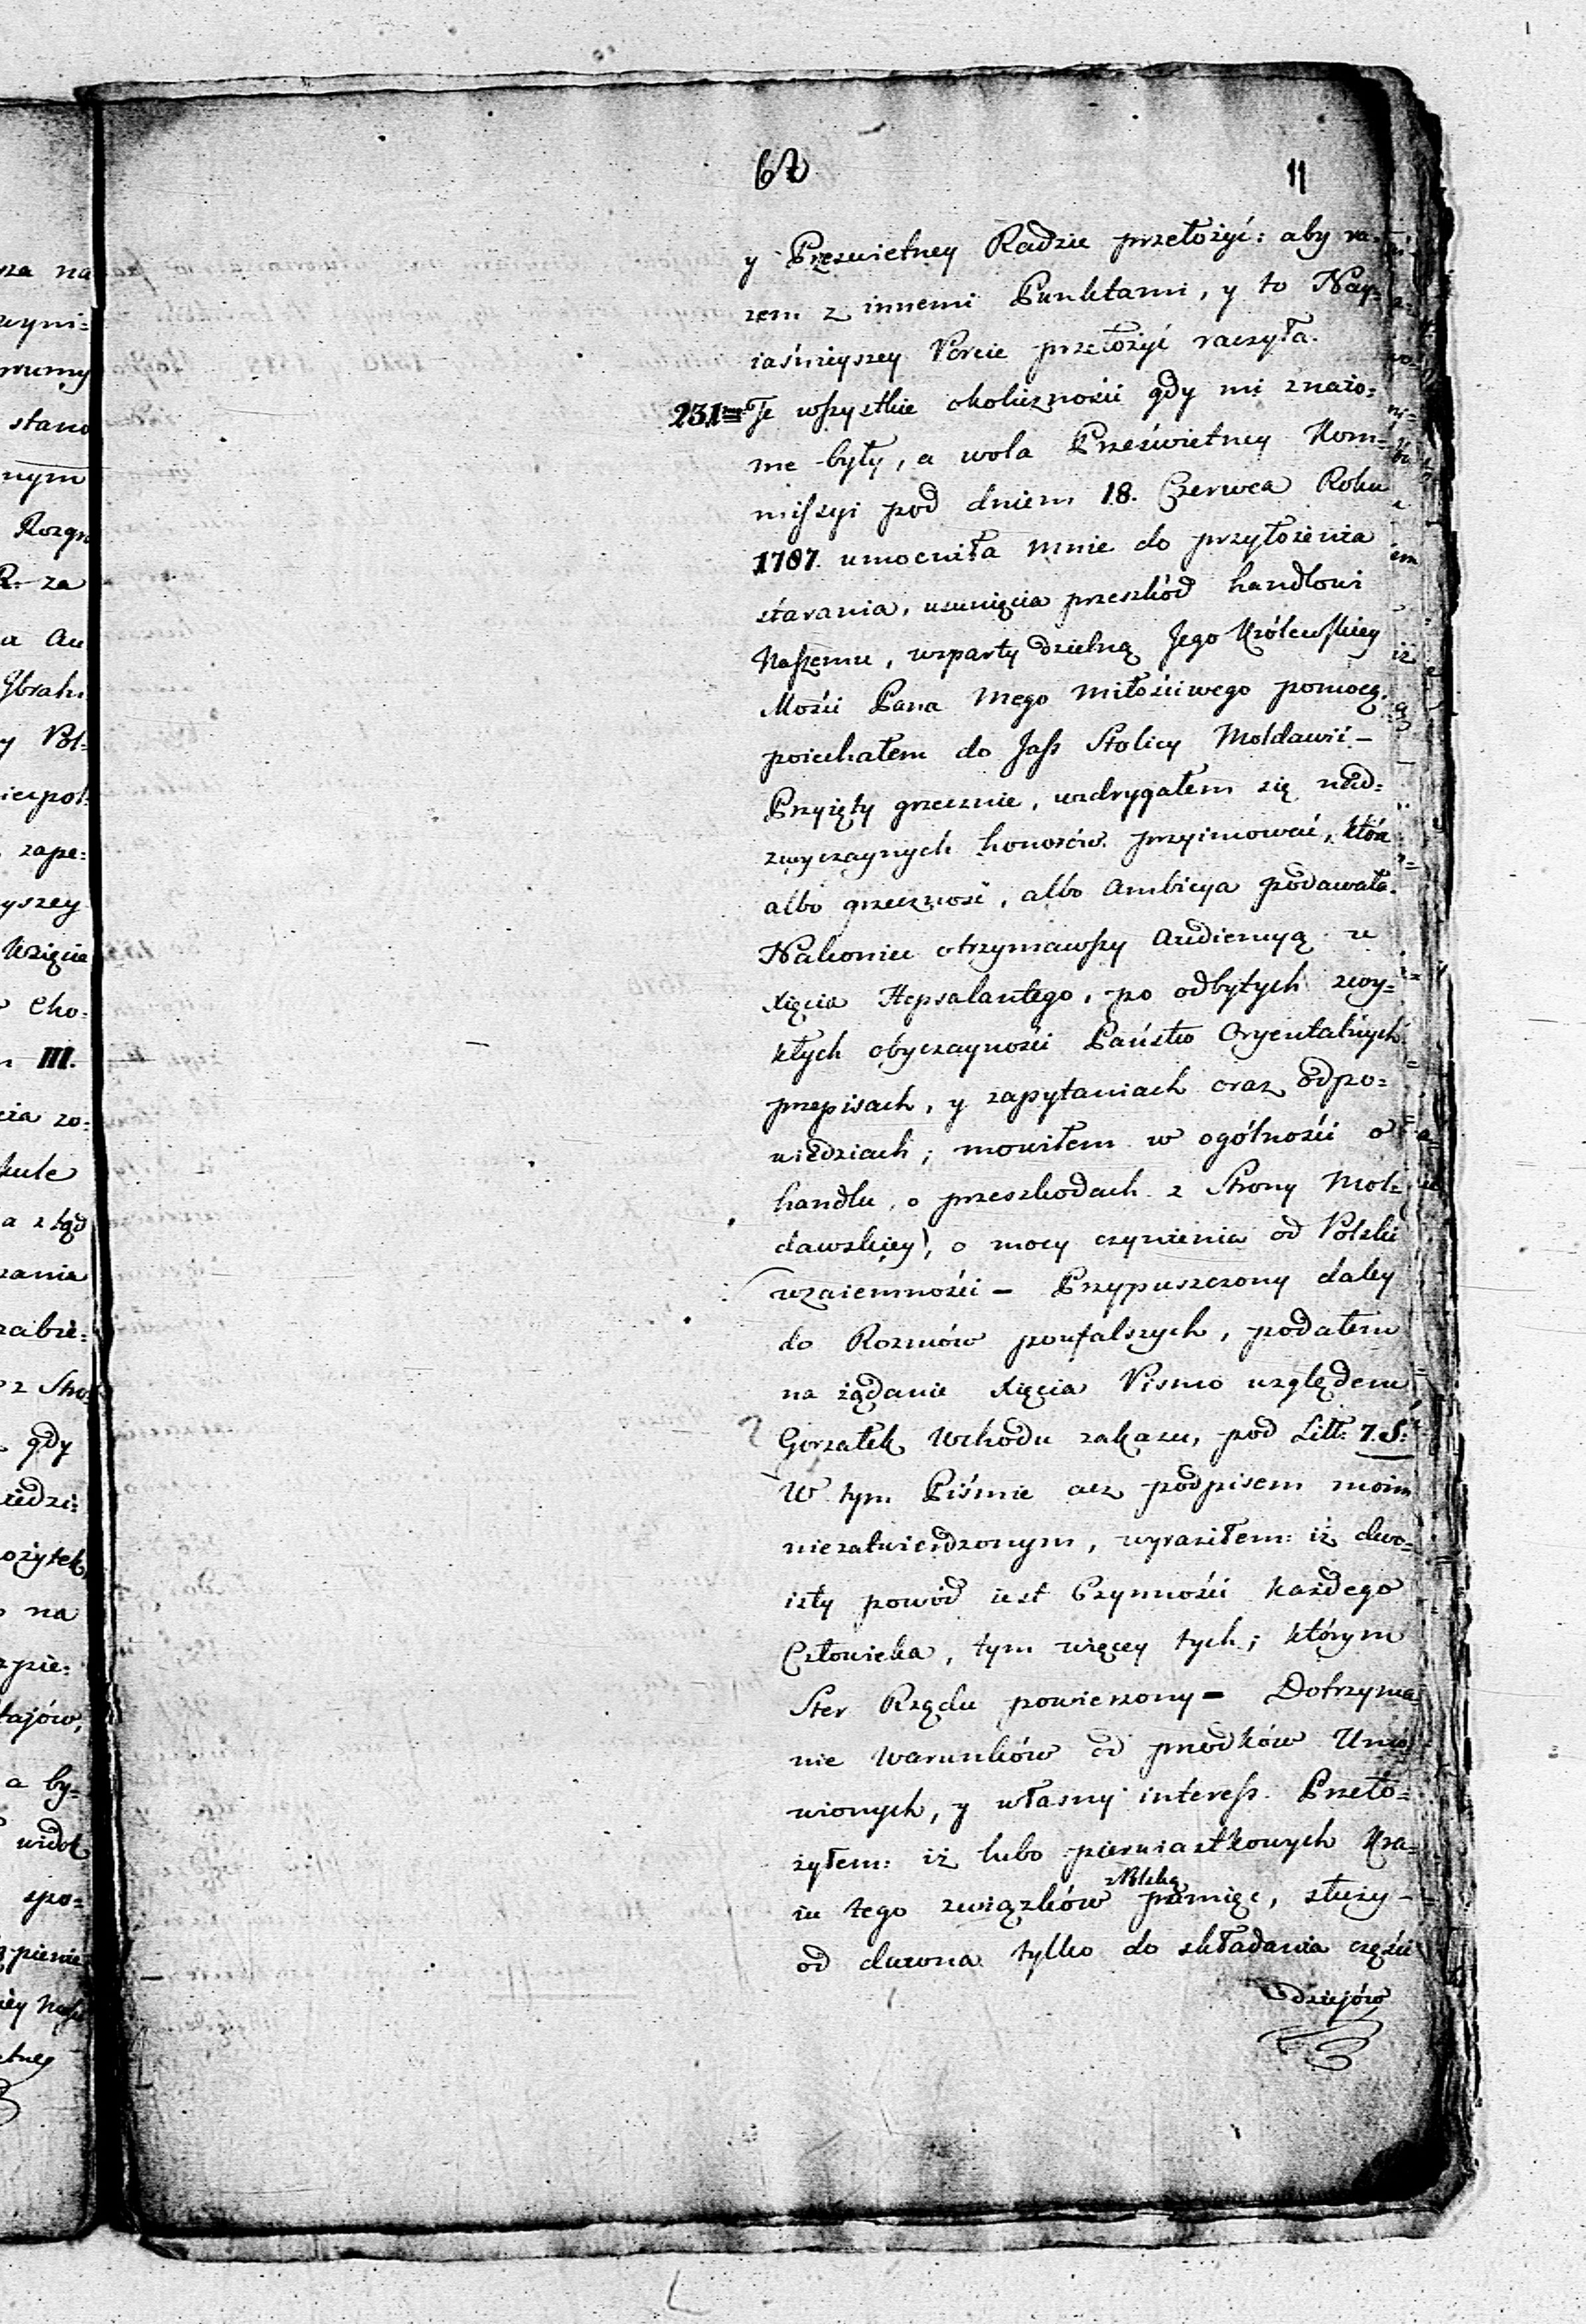 67 11
y Prześwietney Radzie przełożyć: aby ra-
zem z innemi Punktami, y to Nay-
iaśnieyszey Porcie przełożyć raczyła.
231 Te wszystkie okoliczności gdy mi znaio-
me były, a wola Prześwietney Kom-
missyi pod dniem 18. Czerwca Roku
1787. umocniła mnie do przyłożenia
starania, usunięcia przeszkód handlowi
Naszemu, wsparty dzielną Jego Królewskiey
Mości Pana Mego Miłościwego pomocą,
poiechałem do Jass Stolicy Mołdawii. –
Przyięty grzecznie, wzdrygałem się nad-
zwyczaynych honorów przyimować, które
albo grzeczność, albo ambicya podawała.
Nakoniec otrzymawszy Audiencyą u
Xięcia Hepsalantego, po odbytych zwy-
kłych obyczayności Państw Oryentalnych
przepisach, y zapytaniach oraz odpo-
wiedziach; mowiłem w ogólności o
handlu, o przeszkodach z Strony Moł-
dawskiey, o mocy czynienia od Polski
wzaiemności – Przypuszczony daley
do Rozmów poufalszych, podałem
na żądanie Xięcia Pismo względem
Gorzałek Wchodu zakazu, pod Litt: 7.S:
W tym Piśmie acz podpisem moim
niezatwierdzonym, wyraziłem: iż dwo-
isty powód iest Czynności każdego
Człowieka, tym więcey tych; którym
Ster Rządu powierzony – Dotrzyma-
nie Warunków od przodków Umó-
wionych, y własny interess. Przeło-
żyłem: iż lubo pierwiastkowych Kra-
iu tego związków z Polską pamięć, służy –
od dawna tylko do składania części
dziejów